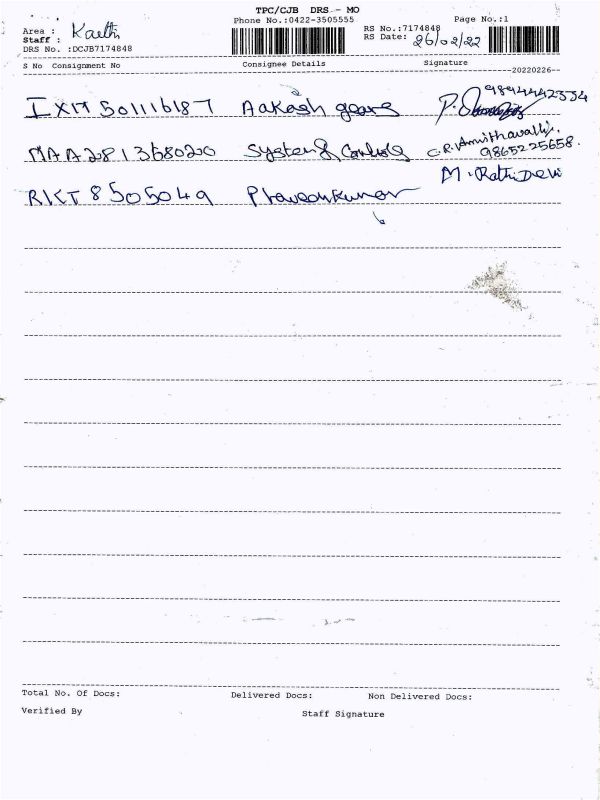 TPC/CJB DRS - MO
Phone No.:0422-3505555 Page No.:1
Area :
Staff : Karthi
RS No.:7174848
RS Date: 26/02/22
DRS No. :DCJB7174848
S No Consignment No Consignee Details Signature
20220226
IXM 501116187 Aakash gears P. 9894442334
MAA281368020 System & Controls C.R. Amithavalli.
9865225658.
RKT 8505049 Praveenkumar M. Rathi Devi
Total No. Of Docs: Delivered Docs: Non Delivered Docs:
Verified By Staff Signature